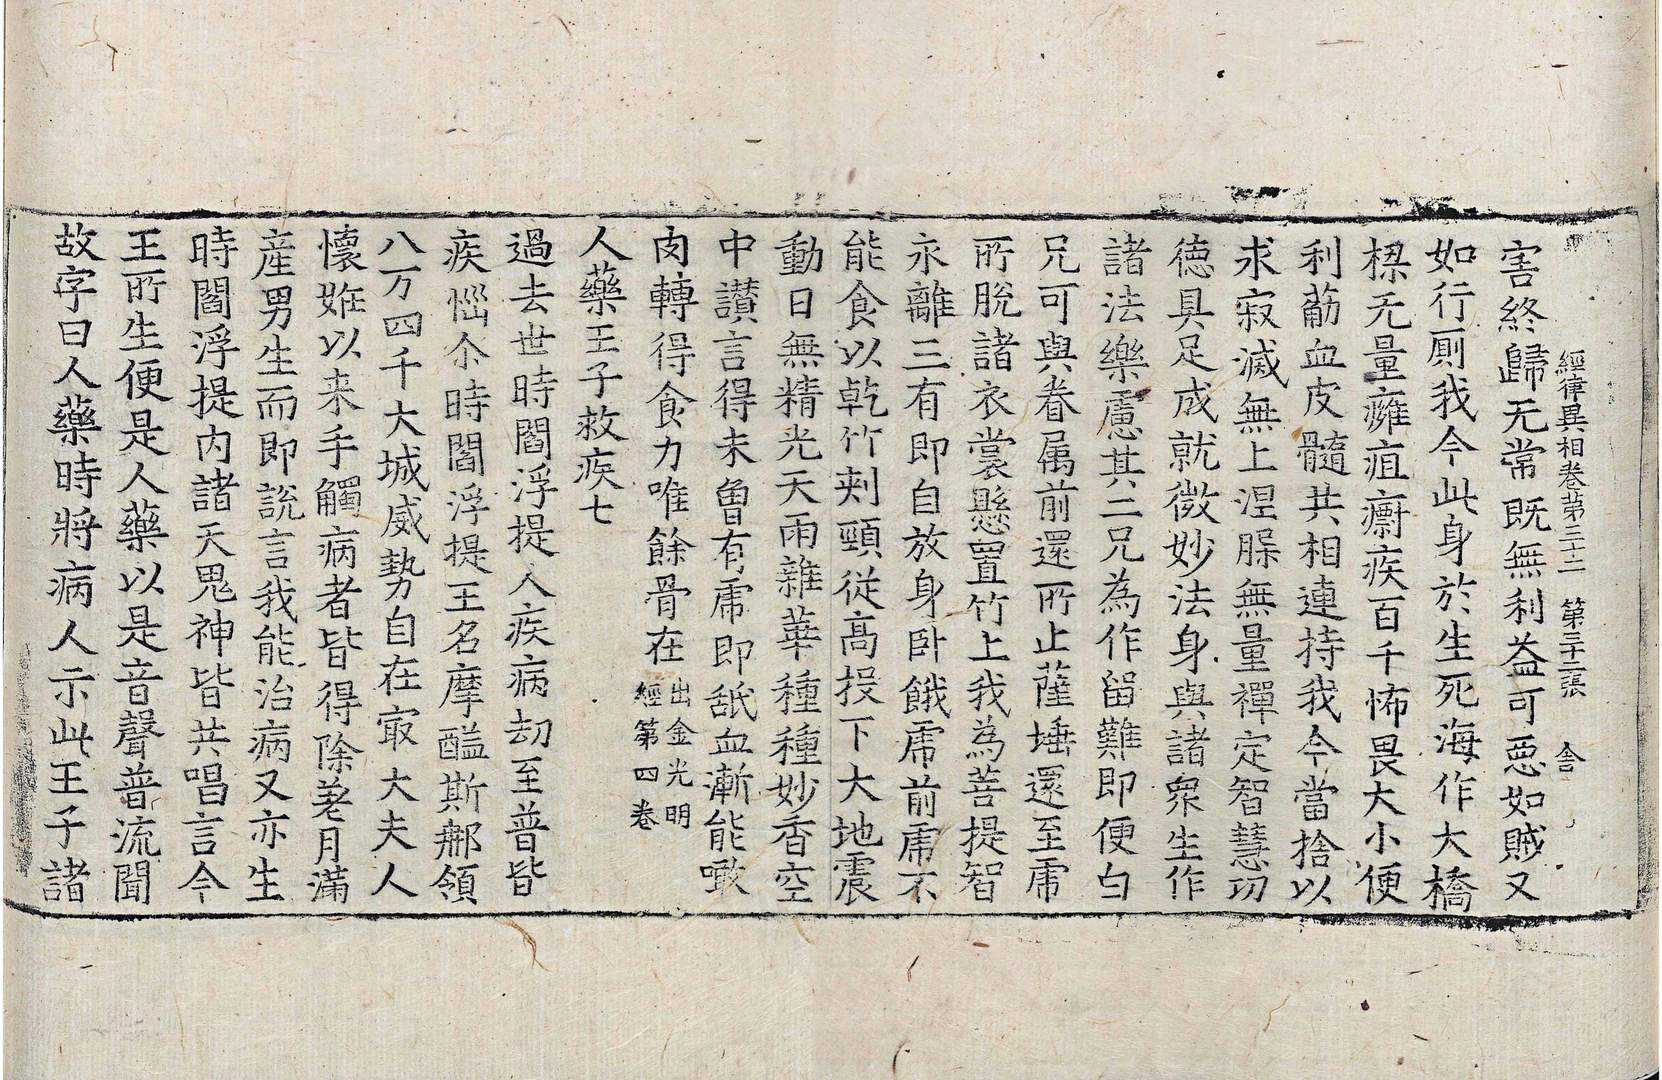 經律異相卷苐三十二 第三十二張 舍
害終歸无常既無利益可惡如賊又
如行厠我今此身於生死海作大橋
樑无量癰疽癤疾百千怖畏大小便
利萠血皮髓共相連持我今當捨以
求寂滅無上涅脲無量禪定智慧㓛
徳具足成就微妙法身與諸衆生作
諸法樂慮其二兄為作留難即便白
兄可與眷属前還所止薩埵還至虎
所脱諸衣裳懸置竹上我為菩提智
永離三有即自放身卧餓虎前虎不
能食以乾竹刾頸從髙投下大地震
動日無精光天雨雜華種種妙香空
中讃言得未曾有虎即舐血漸能噉
肉轉得食力唯餘骨在
出金光明
經第四卷
人藥王子救疾七
過去世時閻浮提人疾病刧至普皆
疾惱尒時閻浮提王名摩醯斯𨚗領
八万四千大城威勢自在㝡大夫人
懐姙以来手觸病者皆得除差月滿
産男生而即說言我能治病又亦生
時閻浮提内諸天鬼神皆共唱言今
王所生便是人藥以是音聲普流聞
故字曰人藥時將病人示此王子諸